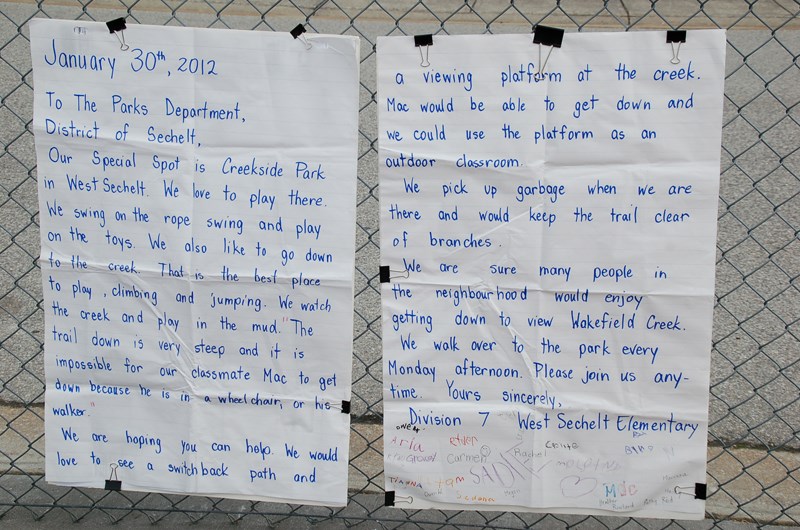 January 30th, 2012
To The Parks Department,
District of Sechelt,
Our Special Spot is Creekside Park
in West Sechelt. We love to play there.
We swing on the rope swing and play
on the toys. We also like to go down
to the creek. That is the best place
to play, climbing and jumping. We watch
the creek and play in the mud. "The
trail down is very steep and it is
impossible for our classmate Mac to get
down because he is in a wheelchair, or his
walker."
We are hoping you can help. We would
love to see a switchback path and
a viewing platform at the creek.
Mac would be able to get down and
we could use the platform as an
outdoor classroom.
We pick up garbage when we are
there and would keep the trail clear
of branches.
We are sure many people in
the neighbourhood would enjoy
getting down to view Wakefield Creek.
We walk over to the park every
Monday afternoon. Please join us any-
time. Yours sincerely,
Division 7 West Sechelt Elementary
Aria
Carmen Rachel
SADIE